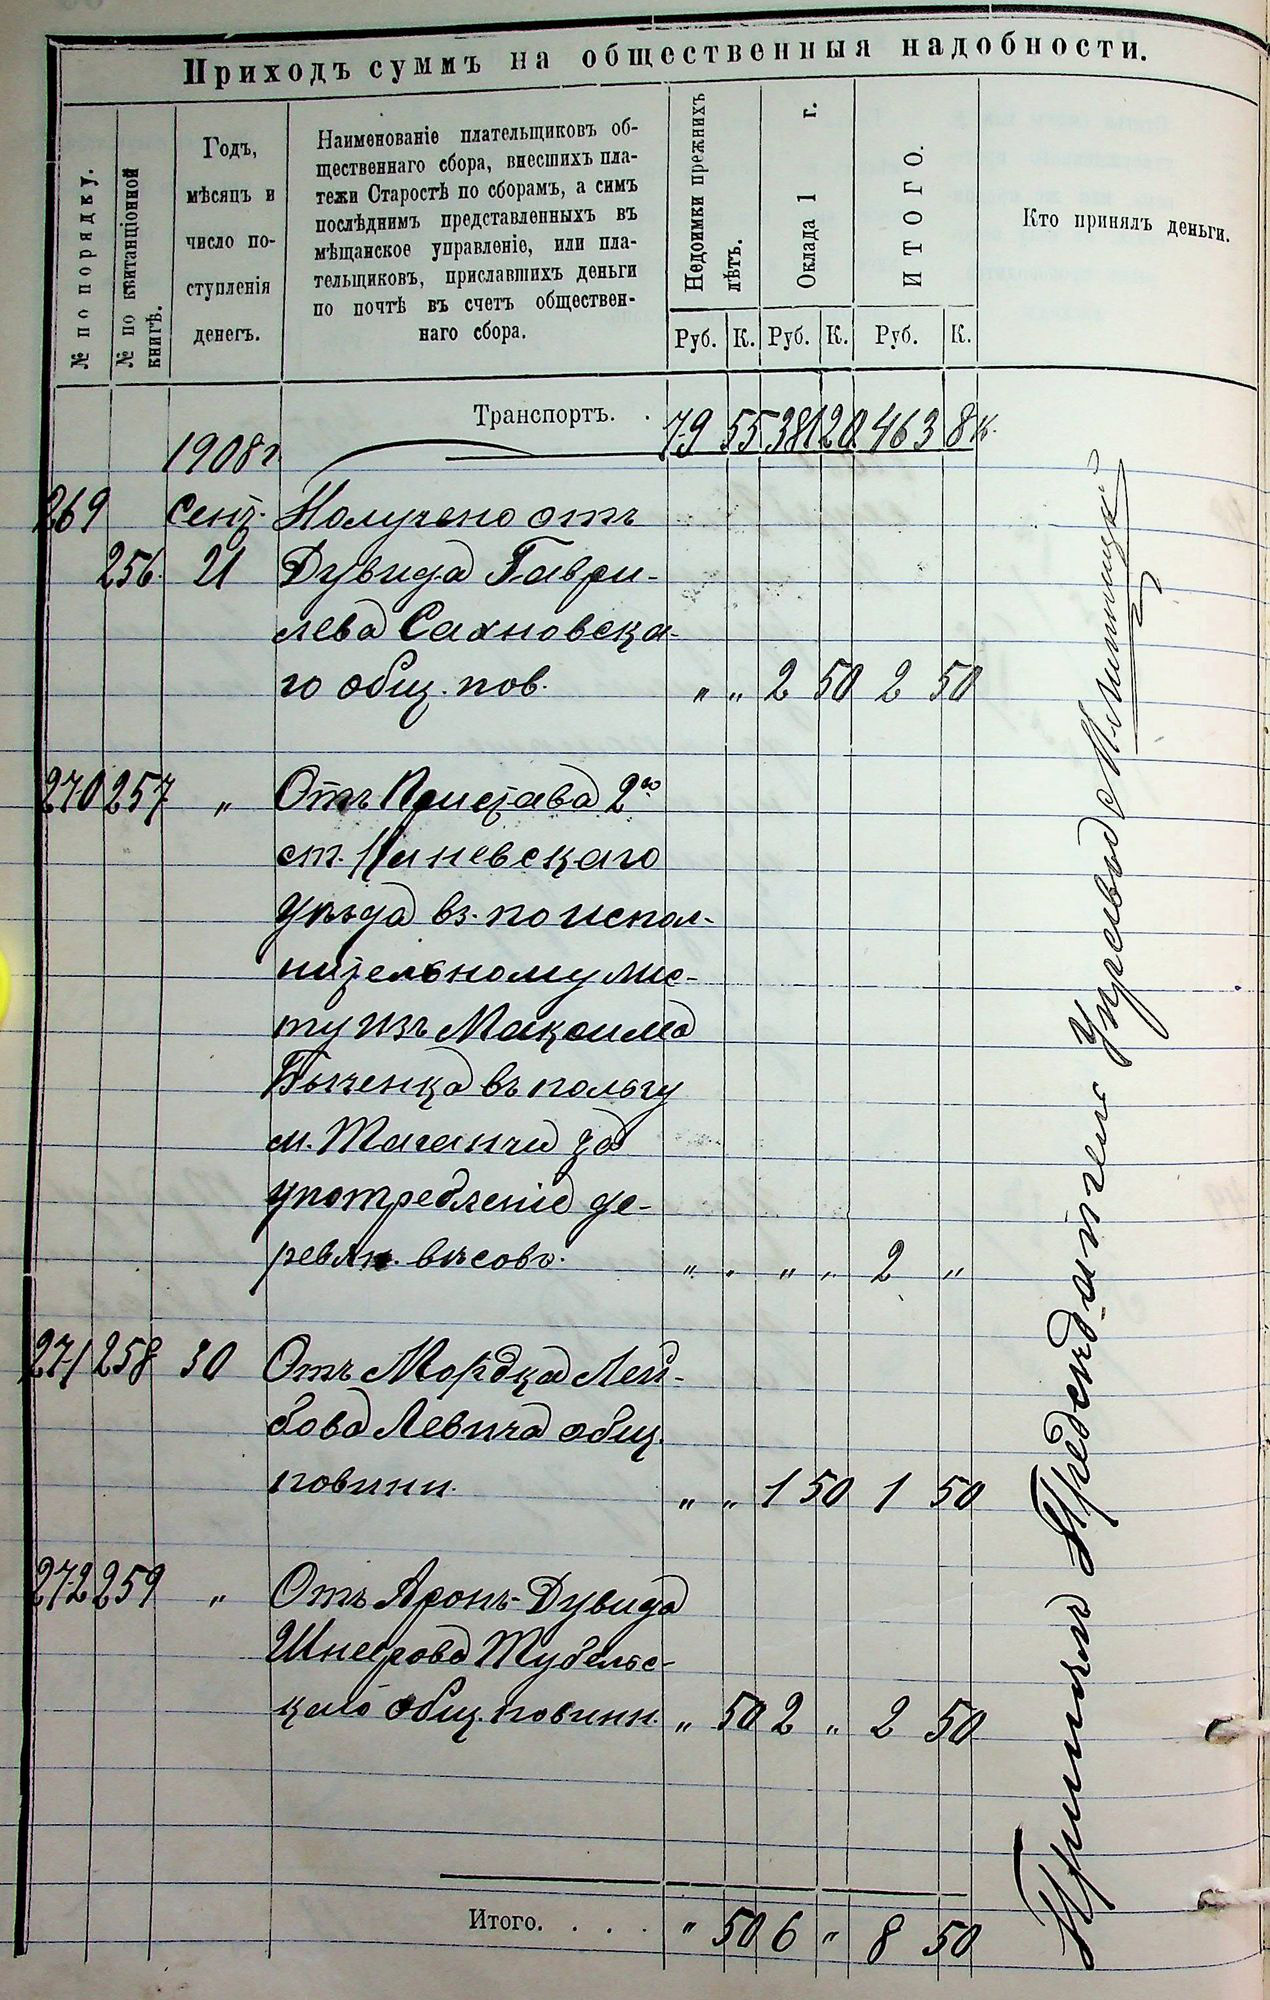 Приходъ суммъ на общественныя надобности.
№ по порядку.
№ по квитанціонной
книгѣ.
Годъ,
мѣсяцъ и
число по-
ступленія
денегъ.
Наименованіе плательщиковъ об-
щественнаго сбора, внесшихъ пла-
тежи Старостѣ по сборамъ, а симъ
послѣднимъ представленныхъ въ
мѣщанское управленіе, или пла-
тельщиковъ, приславшихъ деньги
по почтѣ въ счетъ обществен-
наго сбора.
Недоимки прежнихъ
лѣтъ.
Оклада 1 г.
ИТОГО.
Кто принялъ деньги.
Руб. К. Руб. К. Руб. К.
Транспортъ. . 79 55 381 20 463 8 к.
1908 г
269 Сент. Получено отъ
256. 21 Дувида Гаври-
лева Сахновска-
го общ. пов. " " 2 50 2 50
270 257 " Отъ Пристава 2го
ст. Каневскаго
уѣзда вз. по испол-
нительному лис-
ту изъ Максима
Быченка въ пользу
м. Таганчи за
употребленіе де-
ревян. вѣсовъ. " " " " 2 "
271 258 30 Отъ Мордка Лей-
бова Левича общ.
повинн. " " 1 50 1 50
272 259 " Отъ Аронъ-Дувида
Шнеерова Тубельс-
каго общ. повинн. " 50 2 " 2 50
Итого. . . . . " 50 6 " 8 50
Принялъ Председатель Управы